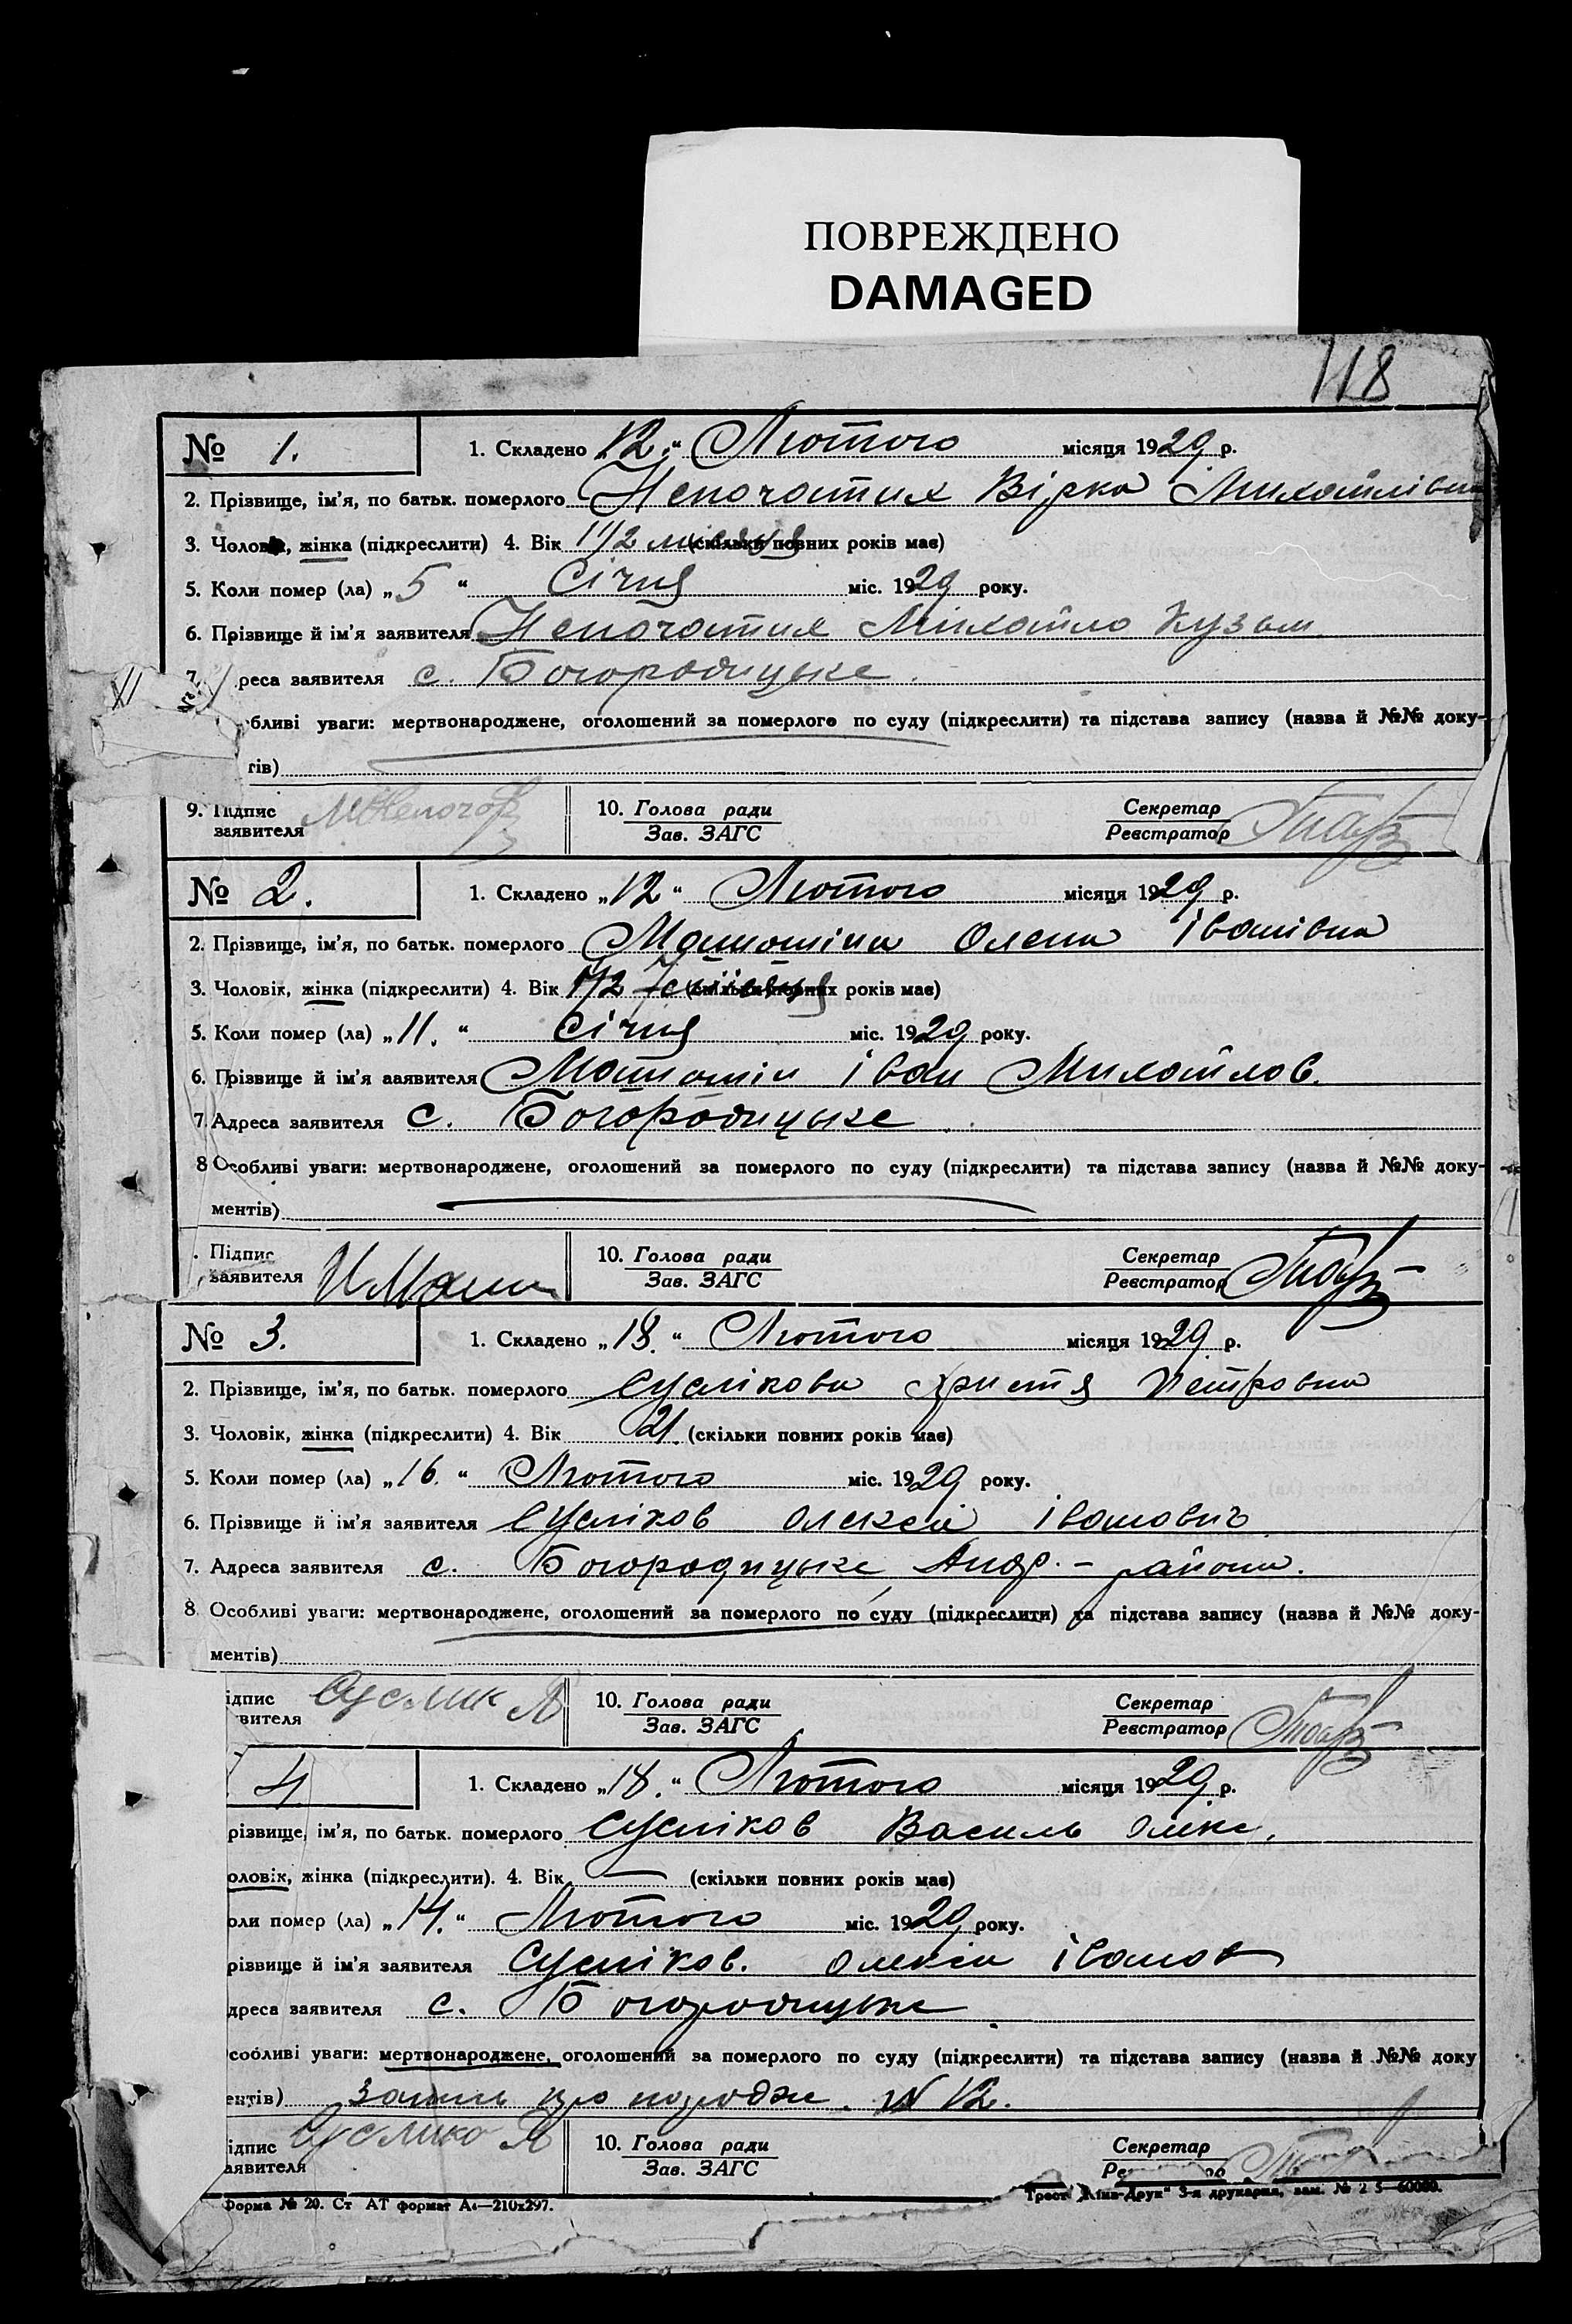 ПОВРЕЖДЕНО
DAMAGED
118
№ 1.
1. Складено „12.“ Лютого місяця 1929 р.
2. Прізвище, ім’я, по батьк. померлого Непочатих Вірка Михайлівна
3. Чоловік, жінка (підкреслити) 4. Вік 1 1/2 місяця (скільки повних років має)
5. Коли помер (ла) „5“ Січня міс. 1929 року.
6. Прізвище й ім’я заявителя Непочатих Михайло Кузьм.
7. реса заявителя с. Богородицьке.
бливі уваги: мертвонароджене, оголошений за померлого по суду (підкреслити) та підстава запису (назва й №№ доку-
тів)
9. Підпис заявителя
10. Голова ради
Зав. ЗАГС
Секретар
Реєстратор
№ 2.
1. Складено „12“ Лютого місяця 1929 р.
2. Прізвище, ім’я, по батьк. померлого Олена Іванівна
3. Чоловік, жінка (підкреслити) 4. Вік 1/2 (скільки повних років має)
5. Коли помер (ла) „11.“ Січня міс. 1929 року.
6. Прізвище й ім’я заявителя Іван Михайлов.
7. Адреса заявителя с. Богородицьке
8 Особливі уваги: мертвонароджене, оголошений за померлого по суду (підкреслити) та підстава запису (назва й №№ доку-
ментів)
. Підпис
заявителя
10. Голова ради
Зав. ЗАГС
Секретар
Реєстратор
№ 3.
1. Складено „18.“ Лютого місяця 1929 р.
2. Прізвище, ім’я, по батьк. померлого Суслікова Христя Петровна
3. Чоловік, жінка (підкреслити) 4. Вік 21. (скільки повних років має)
5. Коли помер (ла) „16.“ Лютого міс. 1929 року.
6. Прізвище й ім’я заявителя Сусліков Олексій Іванович
7. Адреса заявителя с. Богородицьке, Андр. - района.
8. Особливі уваги: мертвонароджене, оголошений за померлого по суду (підкреслити) та підстава запису (назва й №№ доку-
ментів)
ідпис
вителя Суслик А
10. Голова ради
Зав. ЗАГС
Секретар
Реєстратор
4
1. Складено „18.“ Лютого місяця 1929 р.
різвище, ім’я, по батьк. померлого Сусліков Василь Олекс.
оловік, жінка (підкреслити). 4. Вік — (скільки повних років має)
оли помер (ла) „14.“ Лютого міс. 1929 року.
різвище й ім’я заявителя Сусліков. Олексій Іванов
дреса заявителя с. Богородицьке
собливі уваги: мертвонароджене, оголошений за померлого по суду (підкреслити) та підстава запису (назва й №№ доку
ентів) Запись про народже. № 12.
ідпис
аявителя Суслико А
10. Голова ради
Зав. ЗАГС
Секретар
Форма № 20. Ст АТ формат А4—210х297.
Трест „Київ-Друк“ 3-я друкарня, зам. № 2 5—60000.